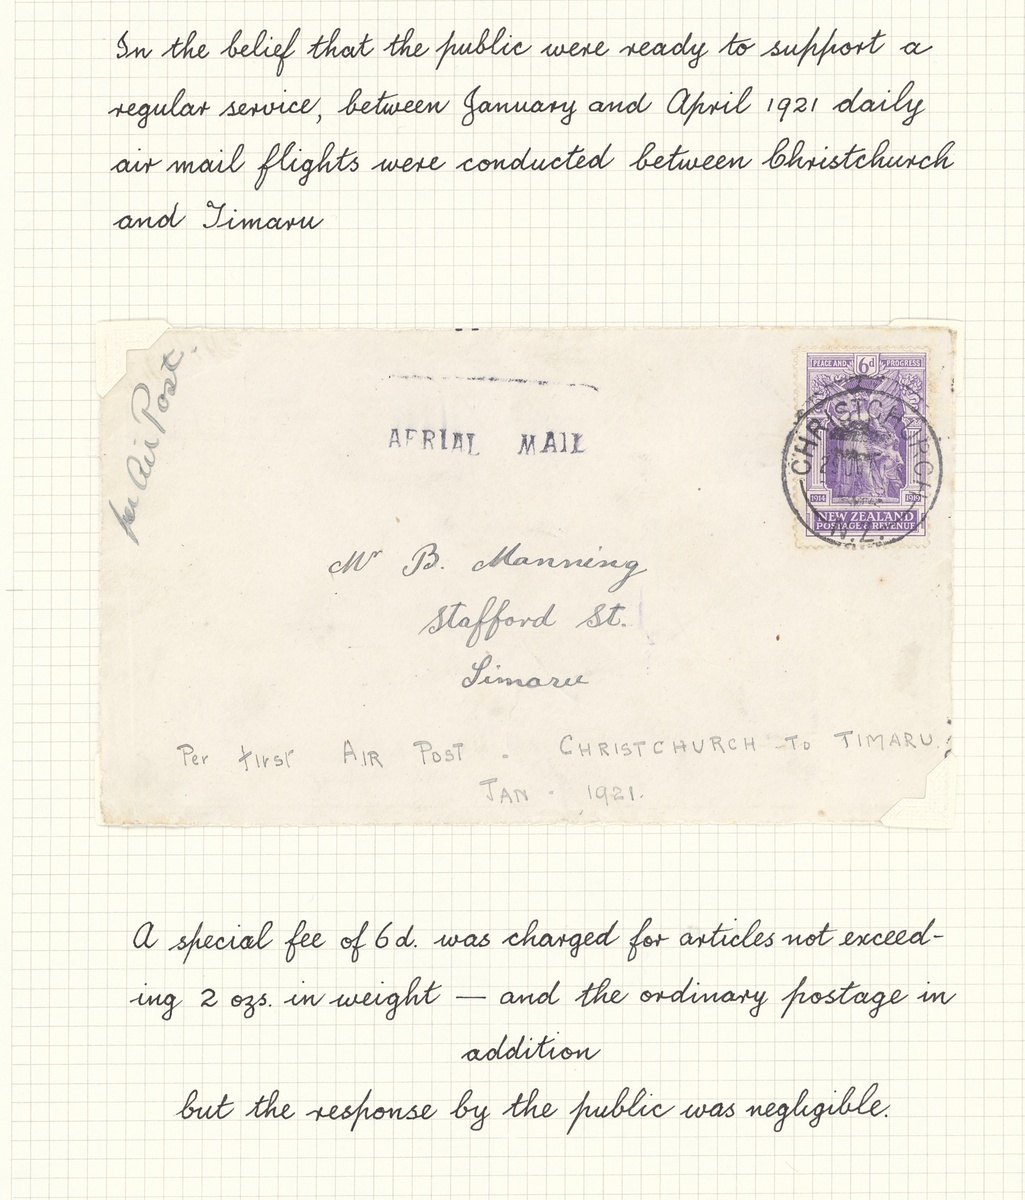 In the belief that the public were ready to support a
regular service, between January and April 1921 daily
air mail flights were conducted between Christchurch
and Timaru
per Air Post.
PEACE AND 6d PROGRESS
AERIAL MAIL
CHRISTCHURCH
N.Z.
1914 1919
NEW ZEALAND
POSTAGE & REVENUE
Mr B. Manning
Stafford St.
Timaru
Per First AIR POST - CHRISTCHURCH TO TIMARU.
JAN - 1921.
A special fee of 6d. was charged for articles not exceed-
ing 2 ozs. in weight — and the ordinary postage in
addition
but the response by the public was negligible.